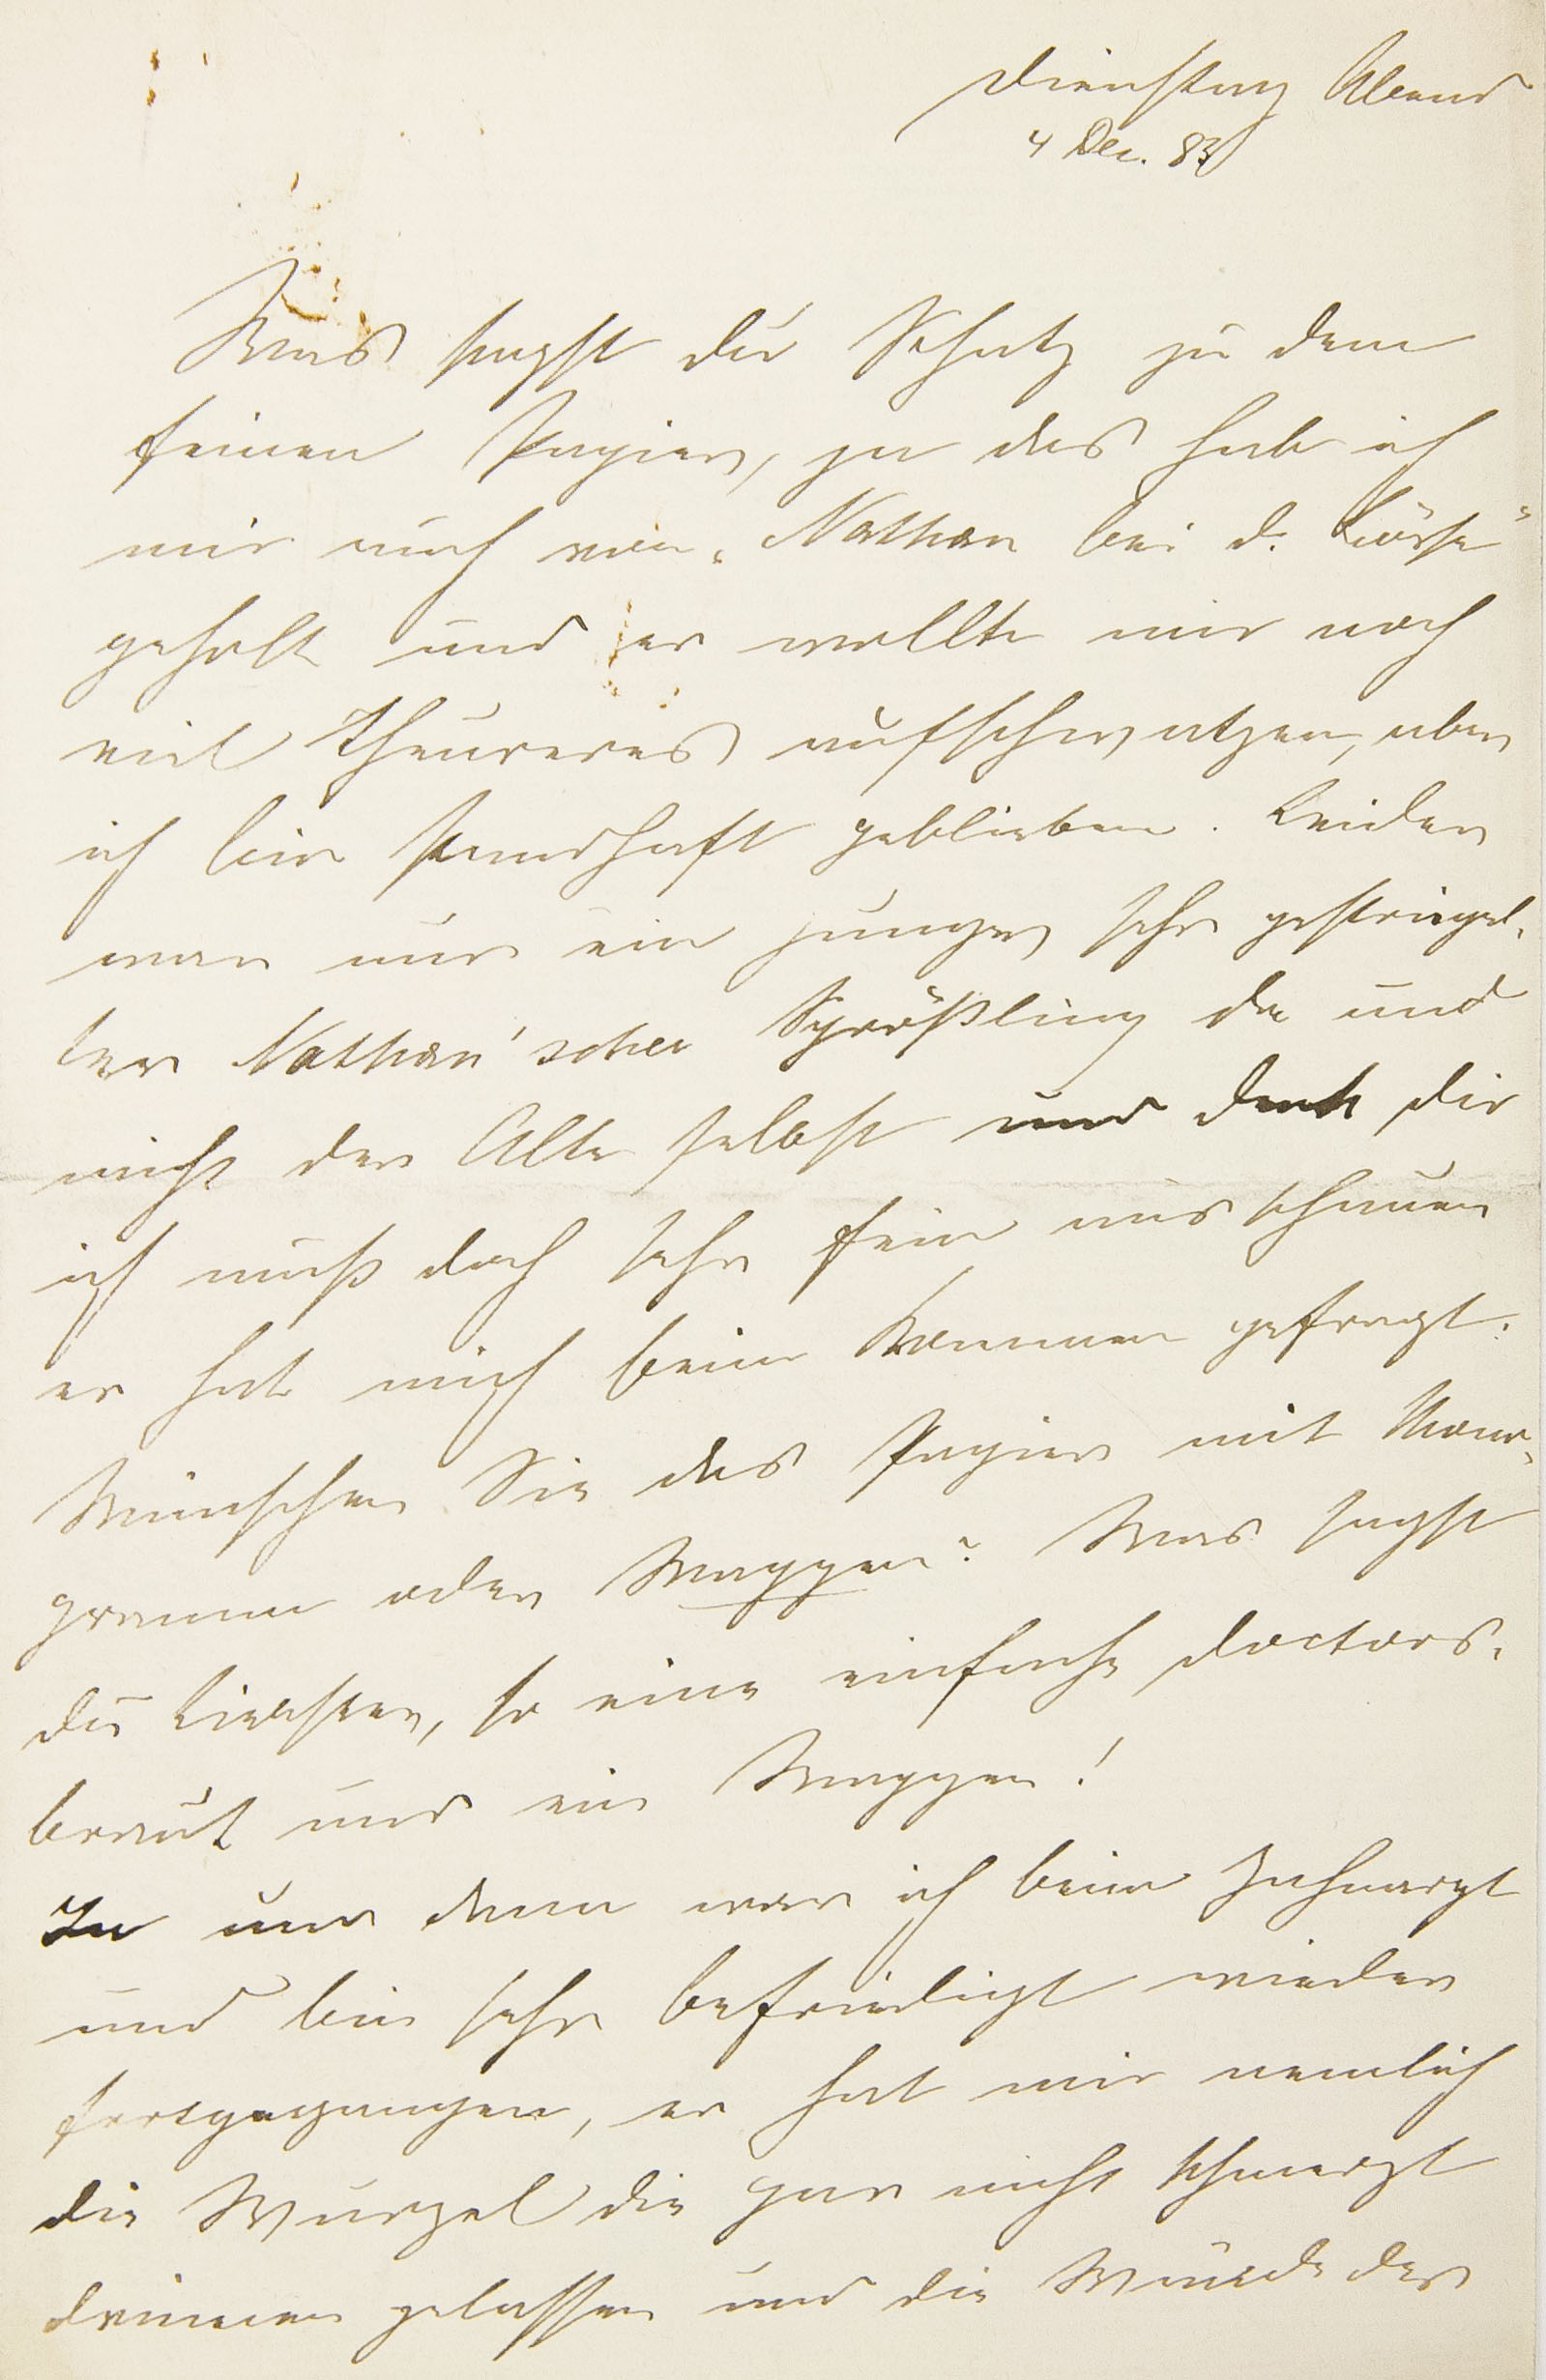 Dienstag Abend
4 Dec. 83
Was sagst du Schatz zu dem
feinen Papier, ja das hab ich
mir auch von „Nathan bei d. Börse“
geholt und er wollte mir noch
viel theureres aufschwatzen, aber
ich bin standhaft geblieben. Leider
war nur ein junger sehr gestriegel-
ter Nathan'scher Sprößling da und
nicht der Alte selbst und denk dir
ich muß doch sehr fein ausschauen
er hat mich beim Kommen gefragt:
Wünschen Sie das Papier mit Mono-
gramm oder Wappen? Was sagst
du Liebster, so eine einfache Doctors-
braut und ein Wappen!
Ja und dann war ich beim Zahnarzt
und bin sehr befriedigt wieder
fortgegangen, er hat mir nemlich
die Wurzel die gar nicht schmerzt
drinnen gelassen und die Wunde der